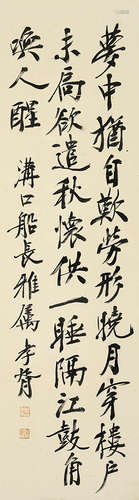 夢中猶自歎勞形曉月穿樓戶
未扃欲遣秋懷供一睡隔江鼓角
喚人醒
溝口船長雅属 孝胥